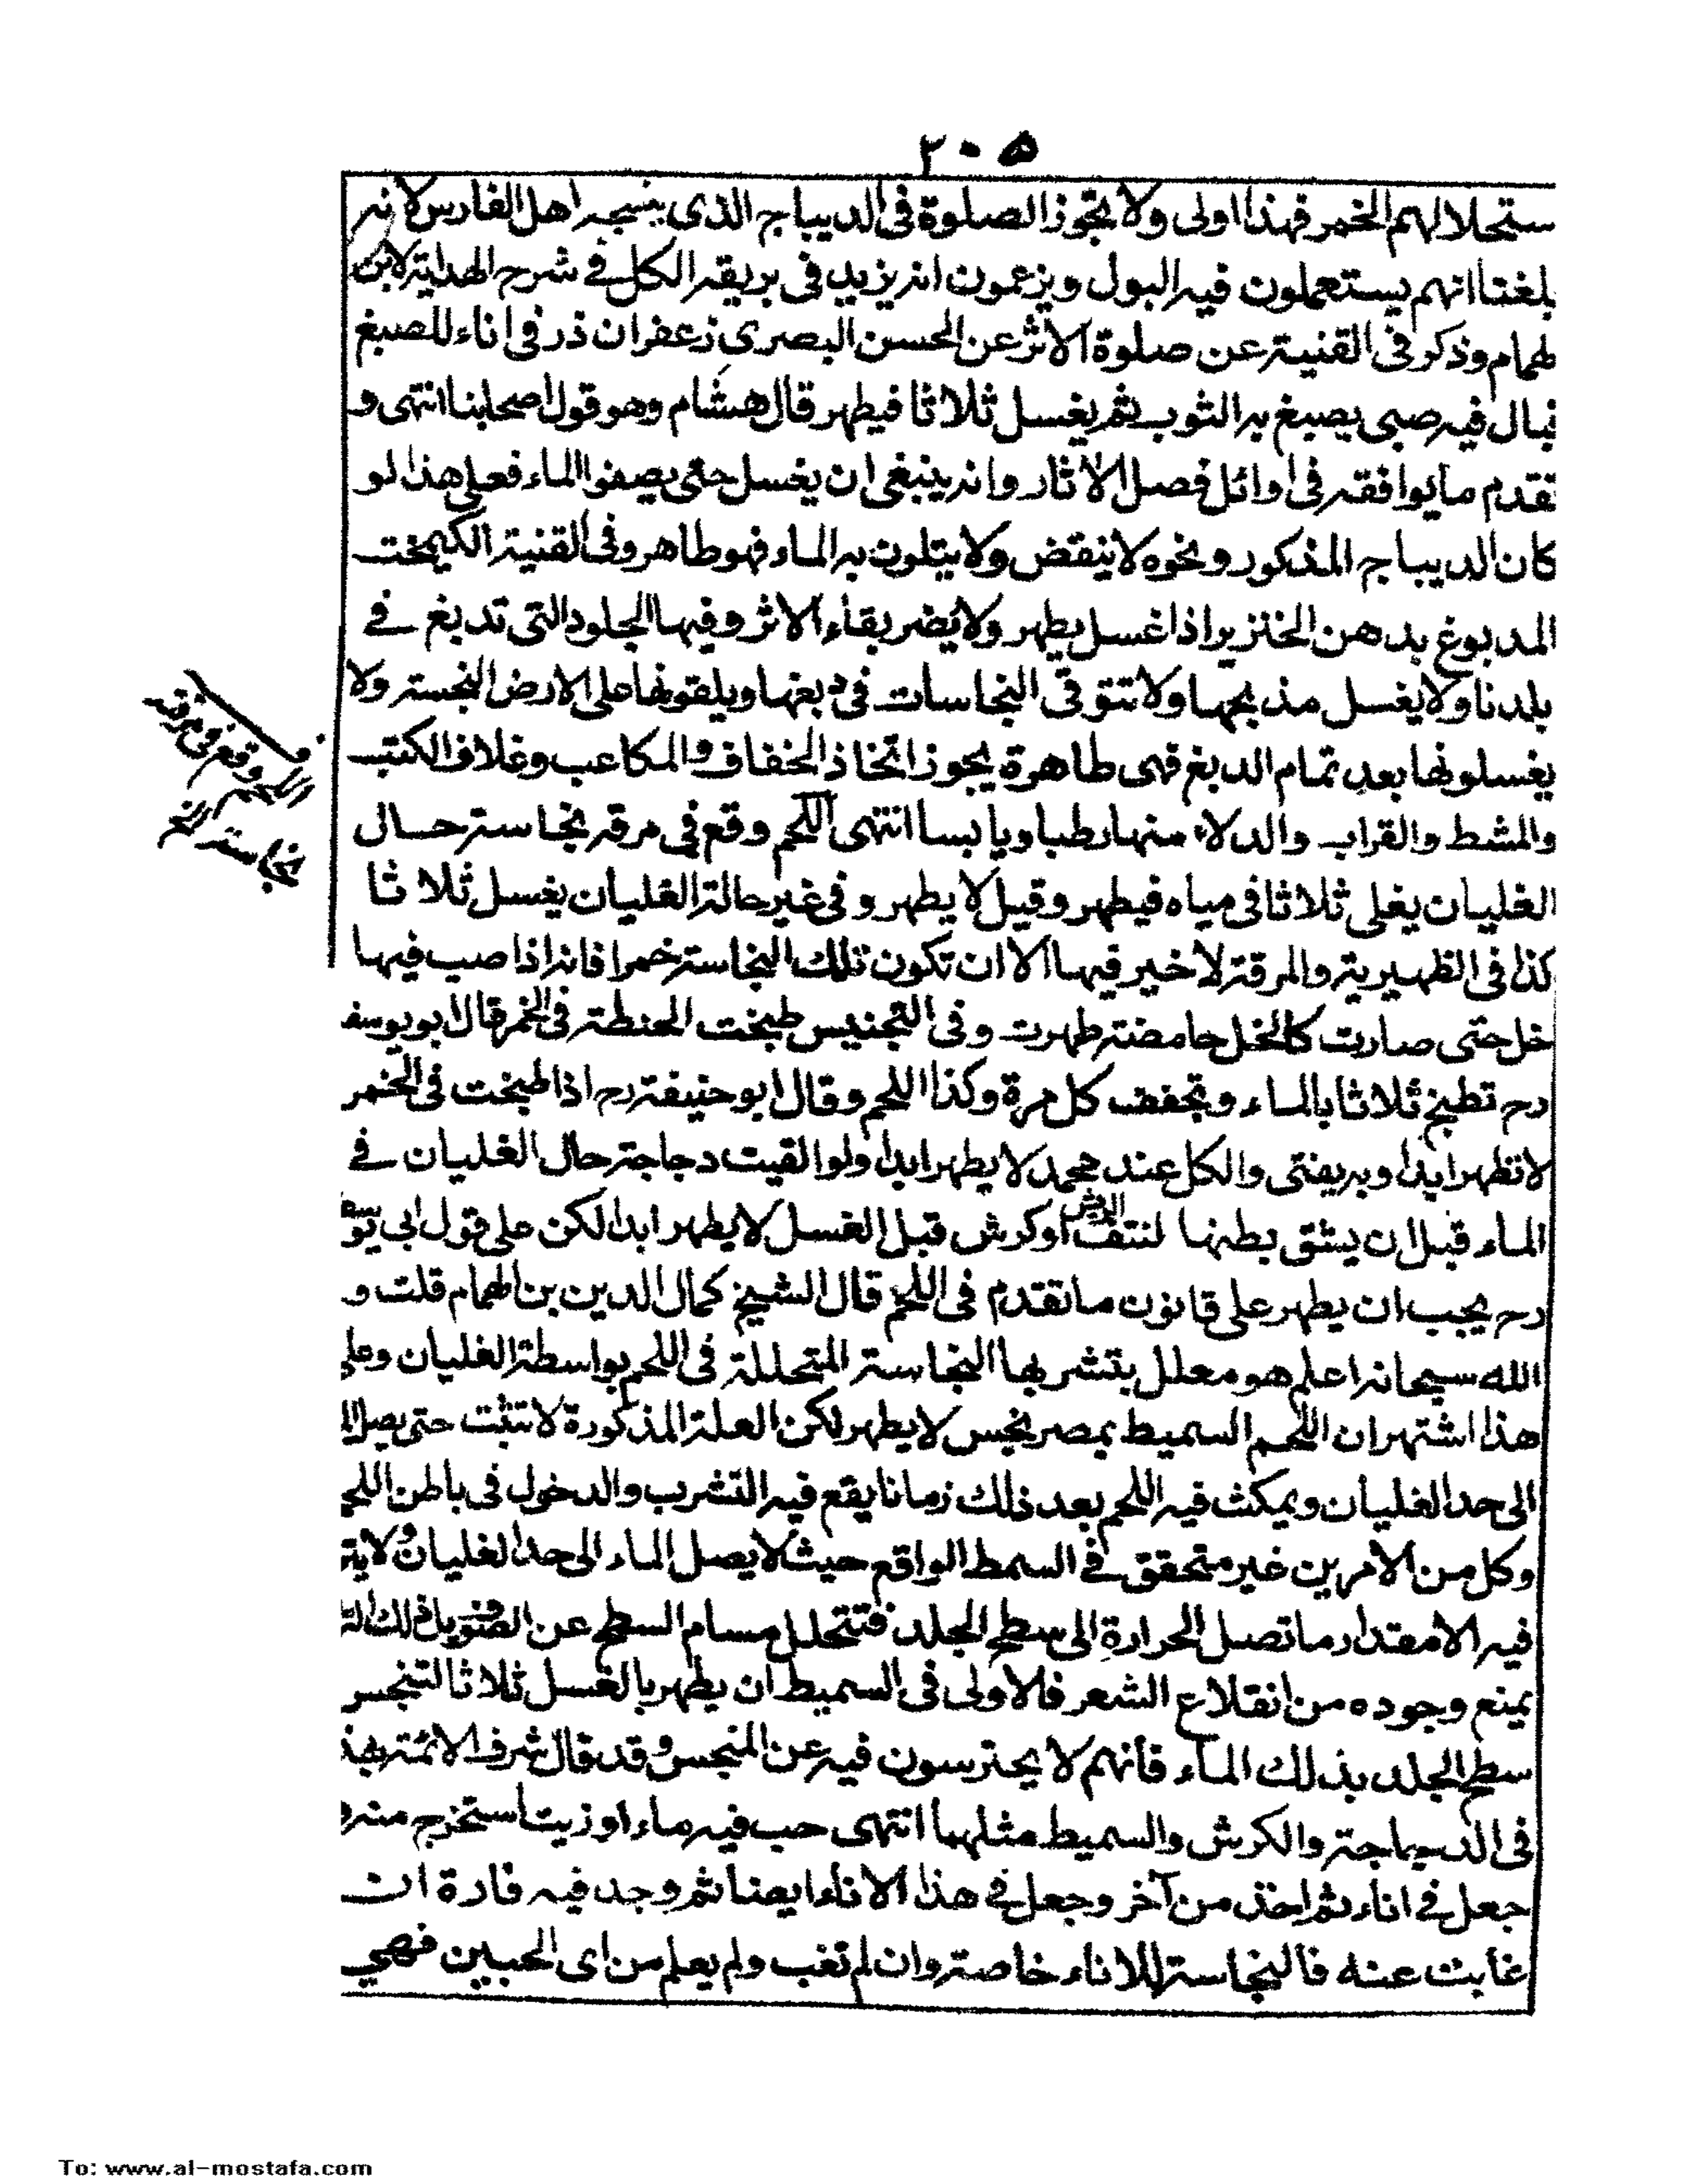 ٢٠٥
ستحلالهم الخمر فهذا اولى ولا تجوز الصلوة فى الديباج الذى ينسجه اهل الفارس لانه
بلغنا انهم يستعملون فيه البول ويزعمون انه يزيد فى بريقه الكل فى شرح الهداية لابن
لهمام وذكر فى القنية عن صلوة الاثر عن الحسن البصرى زعفران ذر فى اناء للصبغ
فبال فيه صبى يصبغ به الثوب ثم يغسل ثلاثا فيطهر قال هشام وهو قول اصحابنا انتهى و
تقدم ما يوافقه فى اوائل فصل الاثار وانه ينبغى ان يغسل حتى يصفوا الماء فعلى هذا لو
كان الديباج المذكور ونحوه لا ينقض ولا يتلون به الماء فهو طاهر وفى القنية الكيمخت
المدبوغ بدهن الخنزير اذا غسل يطهر ولا يضر بقاء الاثر وفيها الجلود التى تدبغ فى
بلدنا ولا يغسل مذبحها ولا تتوقى النجاسات فى دبغها ويلقونها على الارض النجسة ولا
يغسلونها بعد تمام الدبغ فهى طاهرة يجوز اتخاذ الخفاف والمكاعب وغلاف الكتب
والمشط والقراب والدلاء منها رطبا ويابسا انتهى اللحم وقع فى مرقه نجاسة حال
الغليان يغلى ثلاثا فى مياه فيطهر وقيل لا يطهر وفى غير حالة الغليان يغسل ثلاثا
كذا فى الظهيرية والمرقة لا خير فيها الا ان تكون تلك النجاسة خمرا فانه اذا صب فيها
خل حتى صارت كالخل حامضة طهرت وفى التجنيس طبخت الحنطة فى الخمر قال ابو يوسف
رح تطبخ ثلاثا بالماء وتجفف كل مرة وكذا اللحم وقال ابو حنيفة رح اذا طبخت فى الخمر
لا تطهر ابدا وبه يفتى والكل عند محمد لا يطهر ابدا ولو القيت دجاجة حال الغليان فى
الماء قبل ان يشق بطنها لنتف الريش او كرش قبل الغسل لا يطهر ابدا لكن على قول ابى يوسف
رح يجب ان يطهر على قانون ما تقدم فى اللحم قال الشيخ كمال الدين بن الهمام قلت و
الله سبحانه اعلم هو معلل بتشربها النجاسة المتحللة فى اللحم بواسطة الغليان وعلى
هذا اشتهر ان اللحم السميط بمصر نجس لا يطهر لكن العلة المذكورة لا تثبت حتى يصل ال
الى حد الغليان ويمكث فيه اللحم بعد ذلك زمانا يقع فيه التشرب والدخول فى باطن اللحم
وكل من الامرين غير متحقق فى السمط الواقع حيث لا يصل الماء الى حد الغليان ولا يتر
فيه الا مقدار ما تصل الحرارة الى سطح الجلد فتتحلل مسام السطح عن الصوف بل ذلك الت
يمنع وجوده من انقلاع الشعر فالاولى فى السميط ان يطهر بالغسل ثلاثا لتنجس
سطح الجلد بذلك الماء فانهم لا يحترسون فيه عن المنجس وقد قال شرف الائمة بهذ
فى الدجاجة والكرش والسميط مثلهما انتهى حب فيه ماء او زيت استخرج منه و
جعل فى اناء ثم اخذ من آخر وجعل فى هذا الاناء ايضا ثم وجد فيه فارة ان
غابت عنه فالنجاسة للاناء خاصة وان لم تغب ولم يعلم من اى الحبين فهى
اللحم وقع فى مرقه
نجاسة الخ
To: www.al-mostafa.com